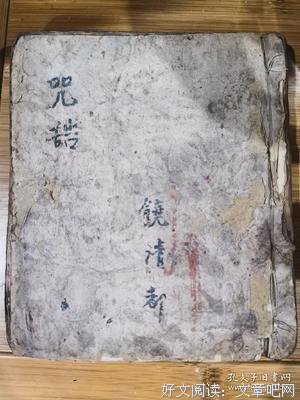 咒語
饒清都
孔夫子旧书网
好文阅读：文章吧网